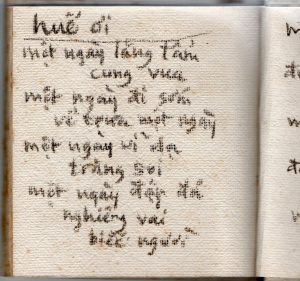 huế ơi
một ngày lăng tẩm
cung vua
một ngày đi sớm
về trưa một ngày
một ngày vĩ dạ
trăng soi
một ngày đập đá
nghiêng vai
biếc người